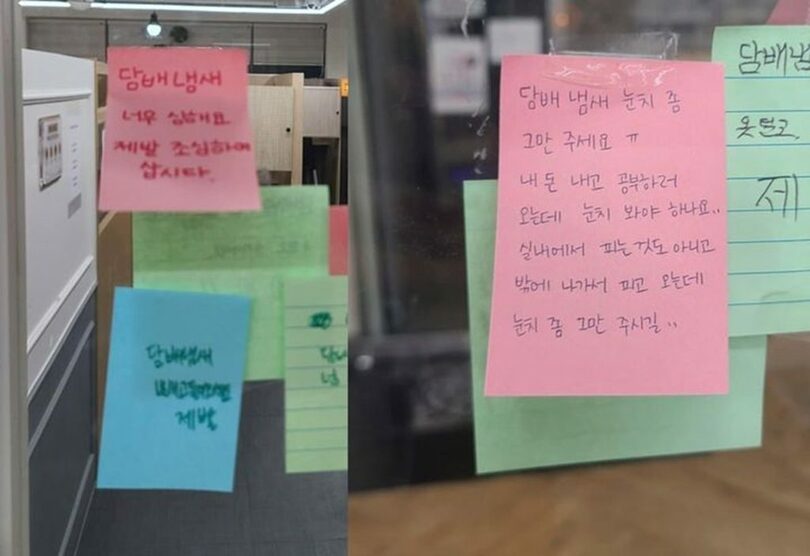 담배냄새
너무 심해요
제발 조심하며
삽시다.
담배냄새
빼고들어와
제발
담배 냄새 눈치 좀
그만 주세요 ㅠ
내 돈 내고 공부하러
오는데 눈치 봐야 하나요..
실내에서 피는것도 아니고
밖에 나가서 피고 오는데
눈치 좀 그만 주시길..
담배냄
옷 털고,
제